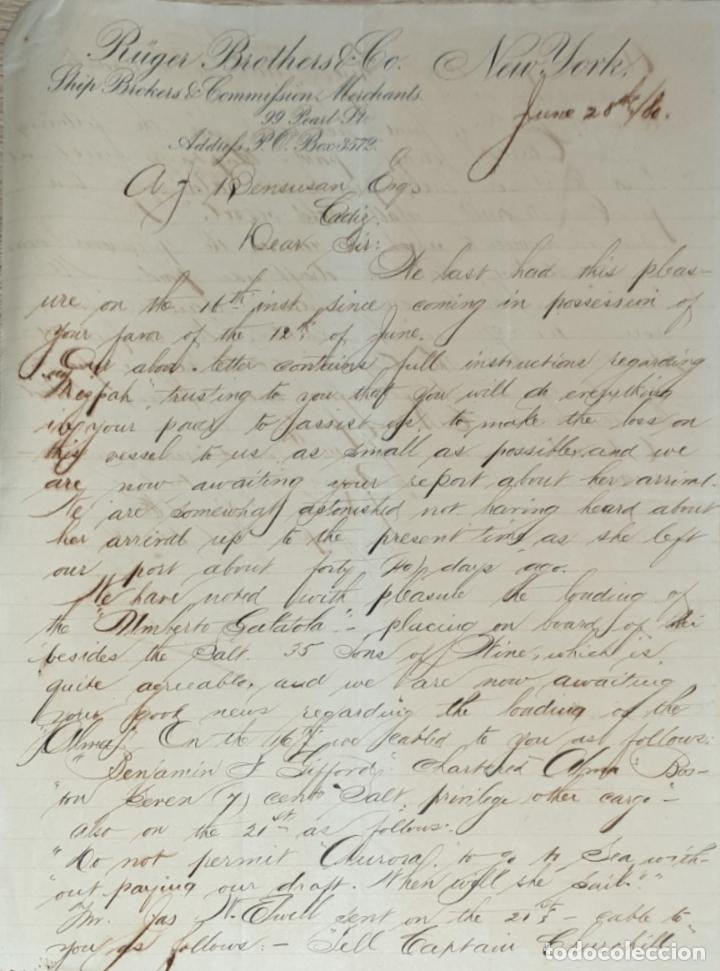 Rüger Brothers & Co. New York.
Ship Brokers & Commission Merchants.
99 Pearl St.
Address P.O. Box 3572.
June 28th/80.
A. J. Bensusan Esq.
Cadiz.
Dear Sir:
We last had this pleas-
ure on the 16th inst. since coming in possession of
your favor of the 12th of June.
Our above letter contains full instructions regarding
"Mizpah" trusting to you that you will do everything
in your power to assist us to make the loss on
this vessel to us as small as possible and we
are now awaiting your report about her arrival.
We are somewhat astonished not having heard about
her arrival up to the present time as she left
our port about forty 40/ days ago.
We have noted with pleasure the loading of
the "Umberto Galatola" - placing on board of
besides the Salt. 35 Tons of Wine, which is
quite agreeable, and we are now awaiting
your good news regarding the loading of the
"Alma". On the 16th we cabled to you as follows:
"Benjamin F Gifford" chartered "Alma" Bos-
ton Seven 7) cents "Salt, privilege other cargo" -
also on the 21st as follows:
"Do not permit "Aurora" to go to Sea with-
"out paying our draft. When will she sail."
Mr. Jas W. Elwell sent on the 21st - cable to
you as follows: - "Tell Captain Churchill"
todocoleccion